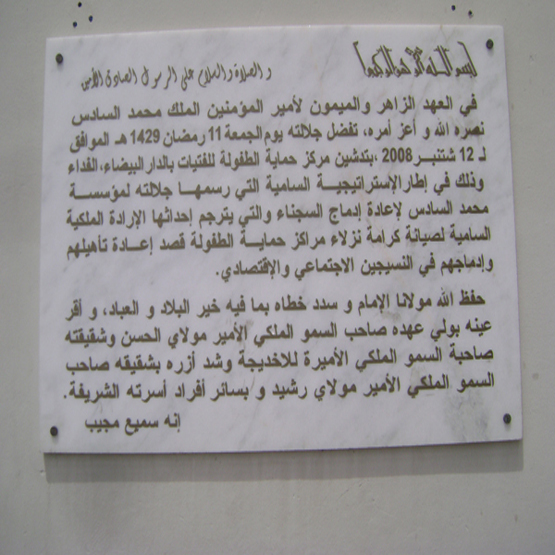 بسم الله الرحمن الرحيم و الصلاة والسلام على الرسول الصادق الأمين
في العهد الزاهر والميمون لأمير المؤمنين الملك محمد السادس
نصره الله و أعز أمره، تفضل جلالته يوم الجمعة 11 رمضان 1429 هـ الموافق
لـ 12 شتنبر 2008 ،بتدشين مركز حماية الطفولة للفتيات بالدار البيضاء، الفداء
وذلك في إطار الإستراتيجية السامية التي رسمها جلالته لمؤسسة
محمد السادس لإعادة إدماج السجناء والتي يترجم إحداثها الإرادة الملكية
السامية لصيانة كرامة نزلاء مراكز حماية الطفولة قصد إعادة تأهيلهم
وإدماجهم في النسيجين الاجتماعي والإقتصادي.
حفظ الله مولانا الإمام و سدد خطاه بما فيه خير البلاد و العباد، و أقر
عينه بولي عهده صاحب السمو الملكي الأمير مولاي الحسن وشقيقته
صاحبة السمو الملكي الأميرة للاخديجة وشد أزره بشقيقه صاحب
السمو الملكي الأمير مولاي رشيد و بسائر أفراد أسرته الشريفة.
إنه سميع مجيب